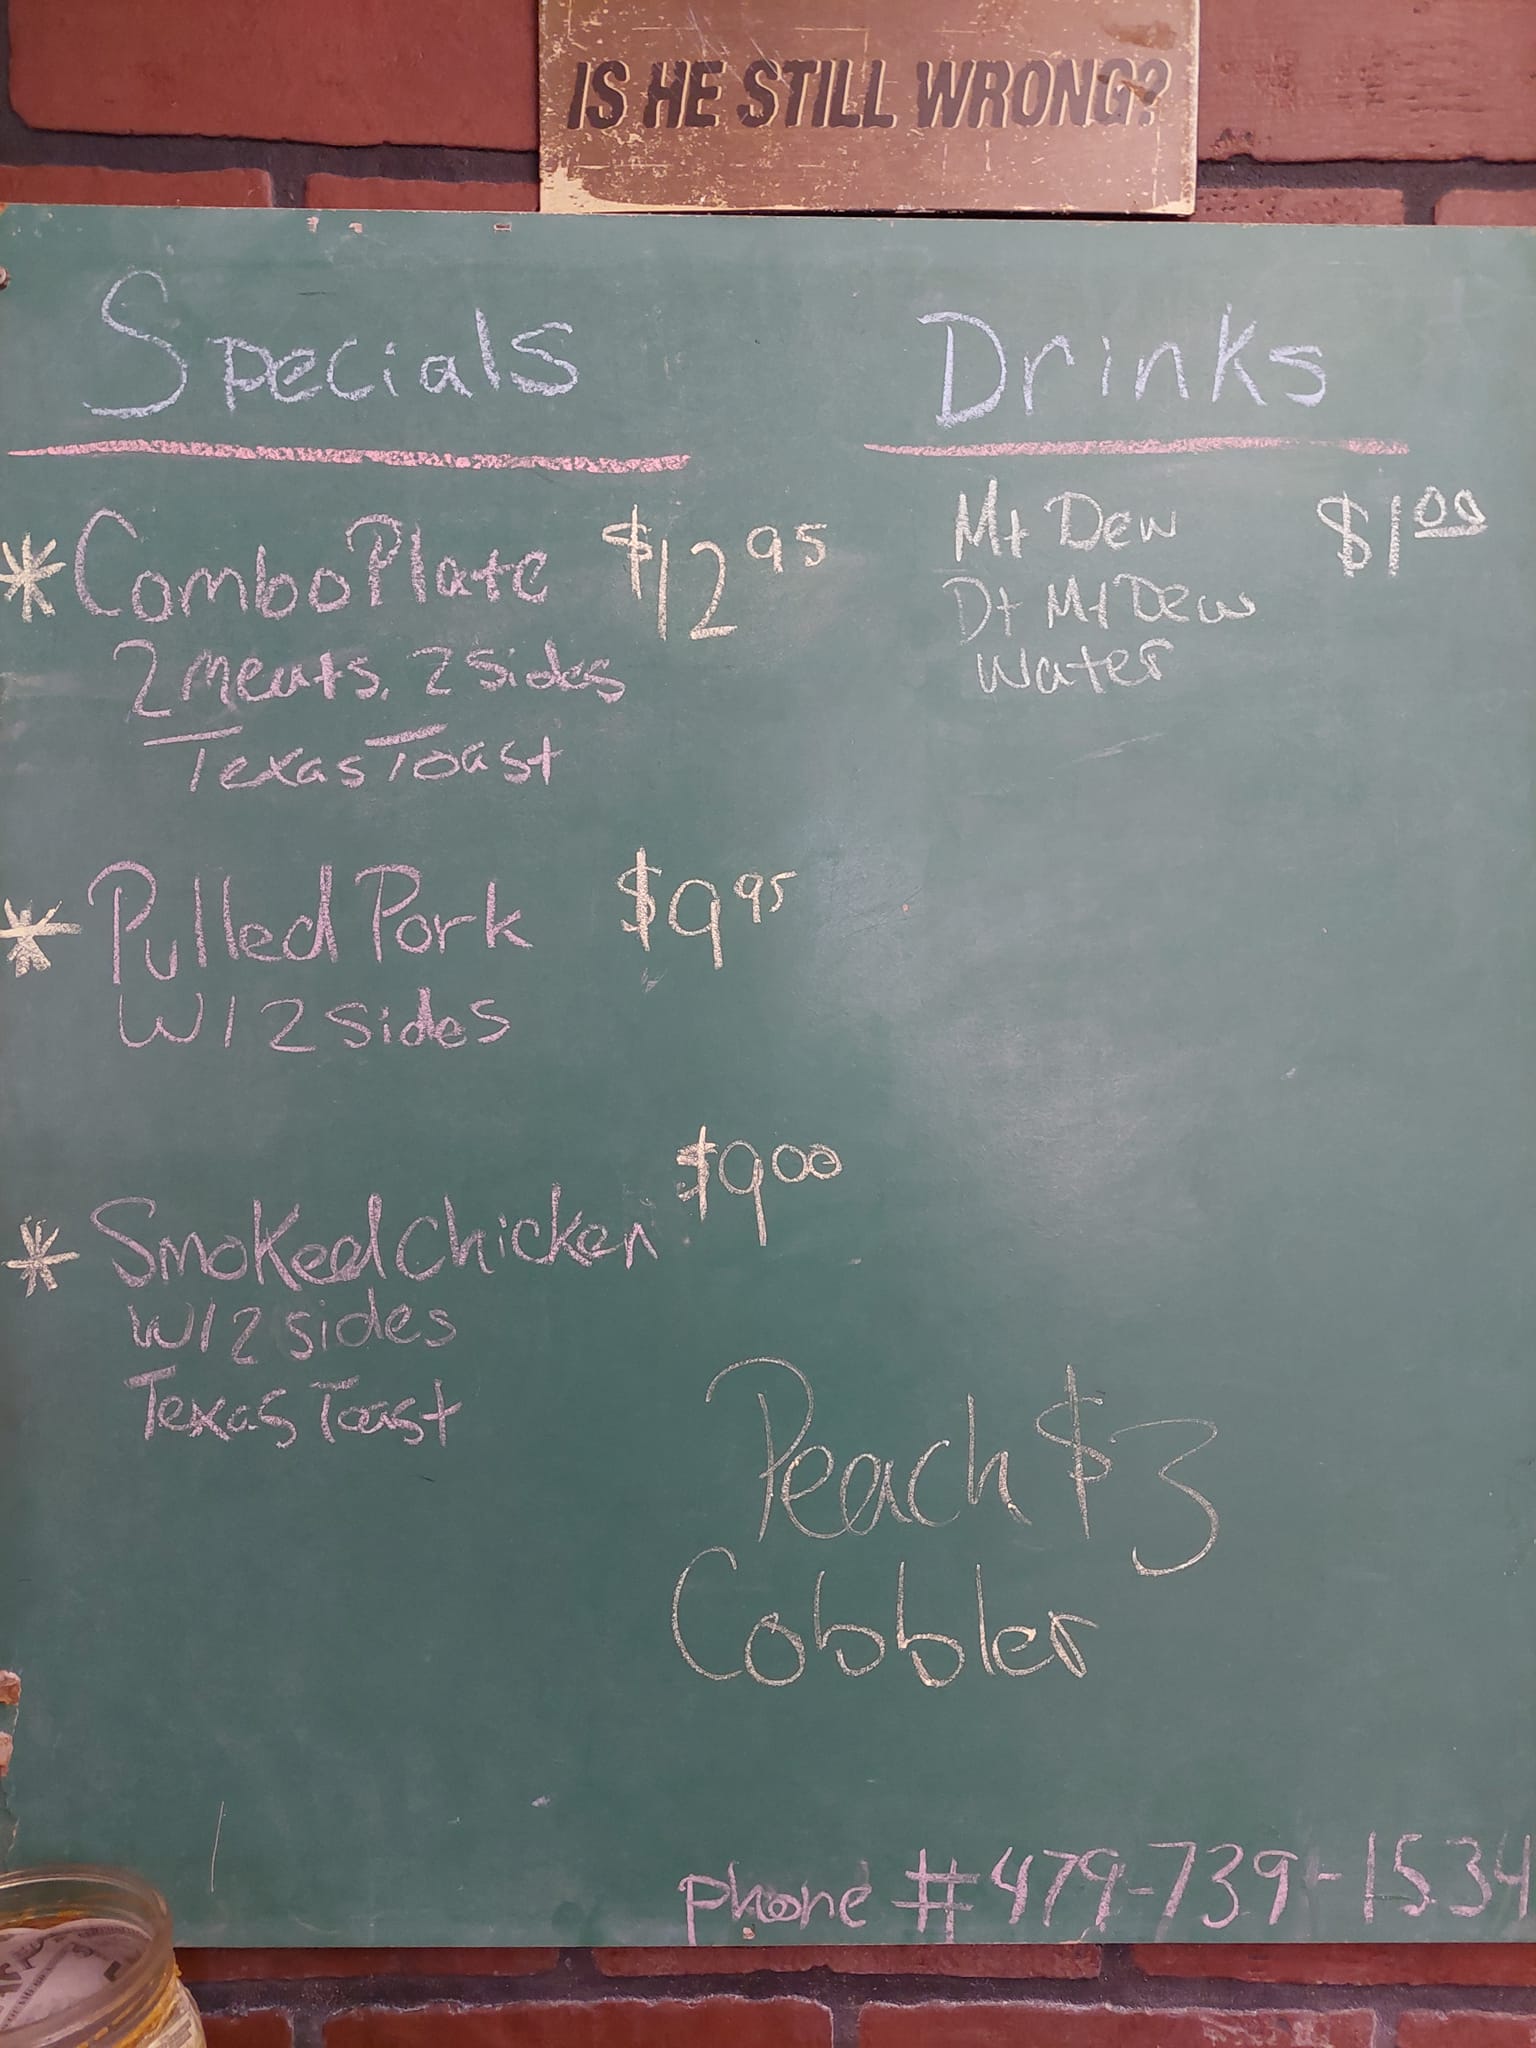 IS HE STILL WRONG?
Specials
* Combo Plate $12.95
2 meats, 2 Sides
Texas Toast
* Pulled Pork $9.95
W/ 2 sides
* Smoked Chicken $9.00
W/ 2 sides
Texas Toast
Drinks
Mt Dew $1.00
Dt Mt Dew
Water
Peach $3
Cobbler
phone # 479-739-1534